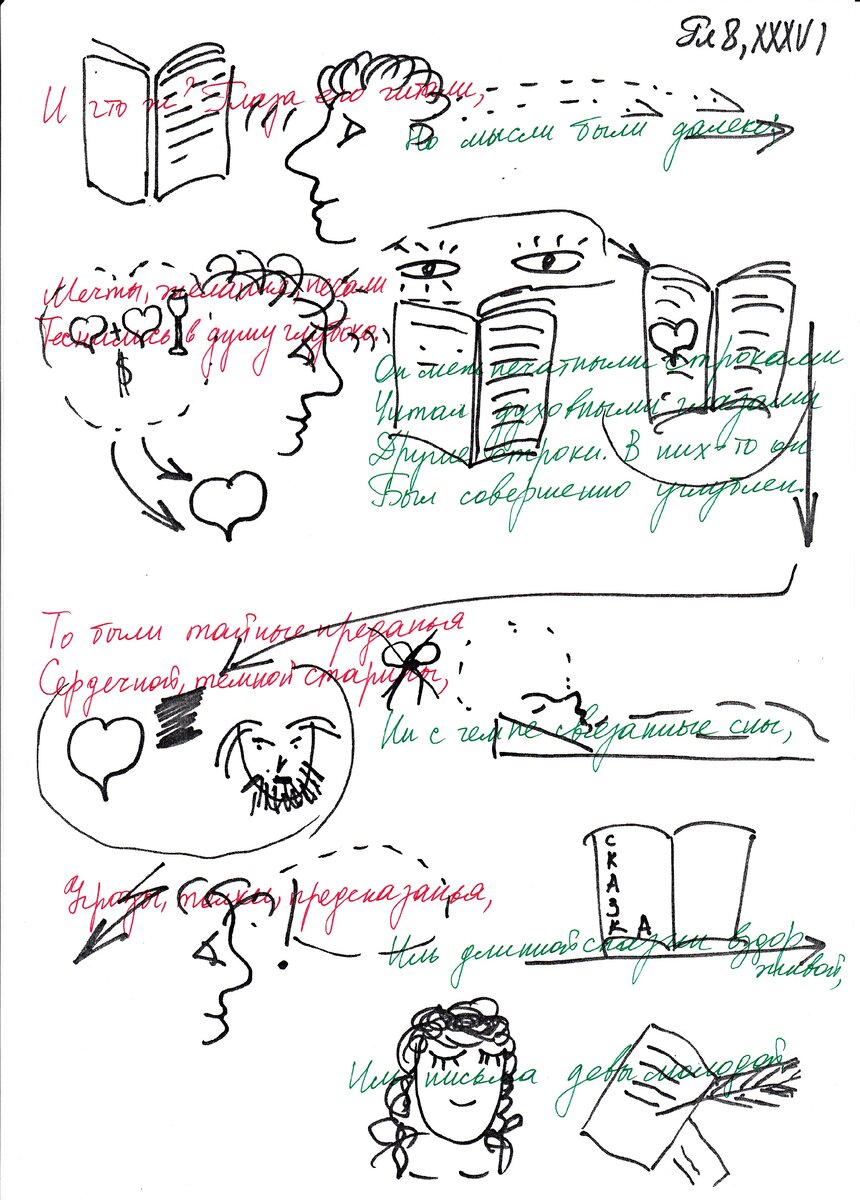 Гл 8, XXXVI
И что ж? Глаза его читали,
Но мысли были далеко;
Мечты, желания, печали
Теснились в душу глубоко.
Он меж печатными строками
Читал духовными глазами
Другие строки. В них-то он
Был совершенно углублен.
То были тайные преданья
Сердечной, темной старины,
Ни с чем не связанные сны,
Угрозы, толки, предсказанья,
СКАЗКА
Иль длинной сказки вздор
живой,
Иль письма девы молодой